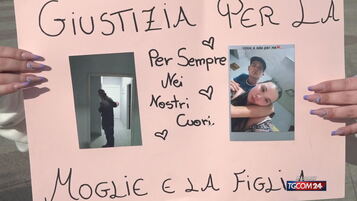 GIUSTIZIA PER LA
Per Sempre
Nei
Nostri
Cuori.
MOGLIE E LA FIGLIA
TGCOM24